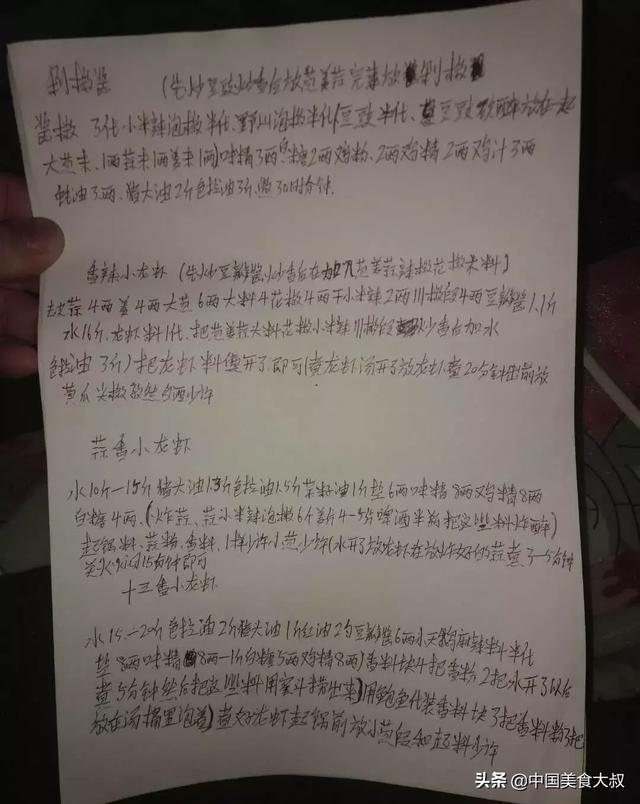 剁椒酱 (先炒豆豉炒香后放葱姜蒜完来放剁椒
酱椒 3代小米辣泡椒半代、野山泡椒半代/豆豉半代、豆豉 放在一起
大葱末、1两蒜末1两姜末1两)味精3两白糖2两鸡粉、2两鸡精2两鸡汁3两
蚝油3两、猪大油2斤色拉油3斤、熬30分钟、
香辣小龙虾 (先炒豆瓣酱炒香后在加入葱姜蒜辣椒花椒大料)
大蒜4两姜4两大葱6两大料4花椒4两干小米辣2两川椒段4两豆瓣酱1.1斤
水16斤、龙虾料1代、把葱姜蒜大料花椒小米辣川椒段 炒香后加水
色拉油3斤)把龙虾料 开了即可(煮龙虾汤开了放龙虾煮20分钟出前放
黄瓜尖椒 白酒少许
蒜香小龙虾
水10斤—15斤猪大油1.5斤色拉油1.5斤菜籽油1斤盐6两味精8两鸡精8两
白糖4两、(炸蒜、蒜小米辣泡椒6个姜片4-5片啤酒半 把这些料炸 )
起锅料、蒜粉、香料、1样少许小葱少许(水开了放龙虾在放炸好的蒜煮3—5分钟
关火 15分钟即可
十三香小龙虾
水15—20斤色拉油2斤猪大油1斤红油2勺豆瓣酱6两小天鹅麻辣料半代
盐8两味精8两—1斤白糖5两鸡精8两)香料块4把香粉2把水开了以后
煮5分钟然后把这些料用 捞出来)用 代装香料块3把香料粉3把
放在汤桶里泡着)煮好龙虾起锅前放小葱段和起料少许
头条 @中国美食大叔